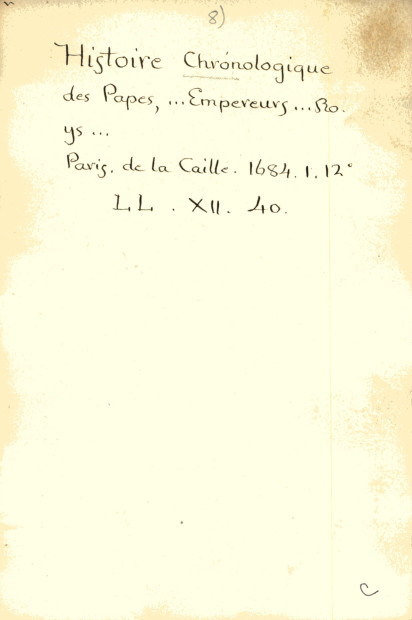 8)
Histoire Chronologique
des Papes, ... Empereurs ... Ro.
ys ...
Paris. de la Caille. 1684. 1. 12°
LL . XII. 40.
C